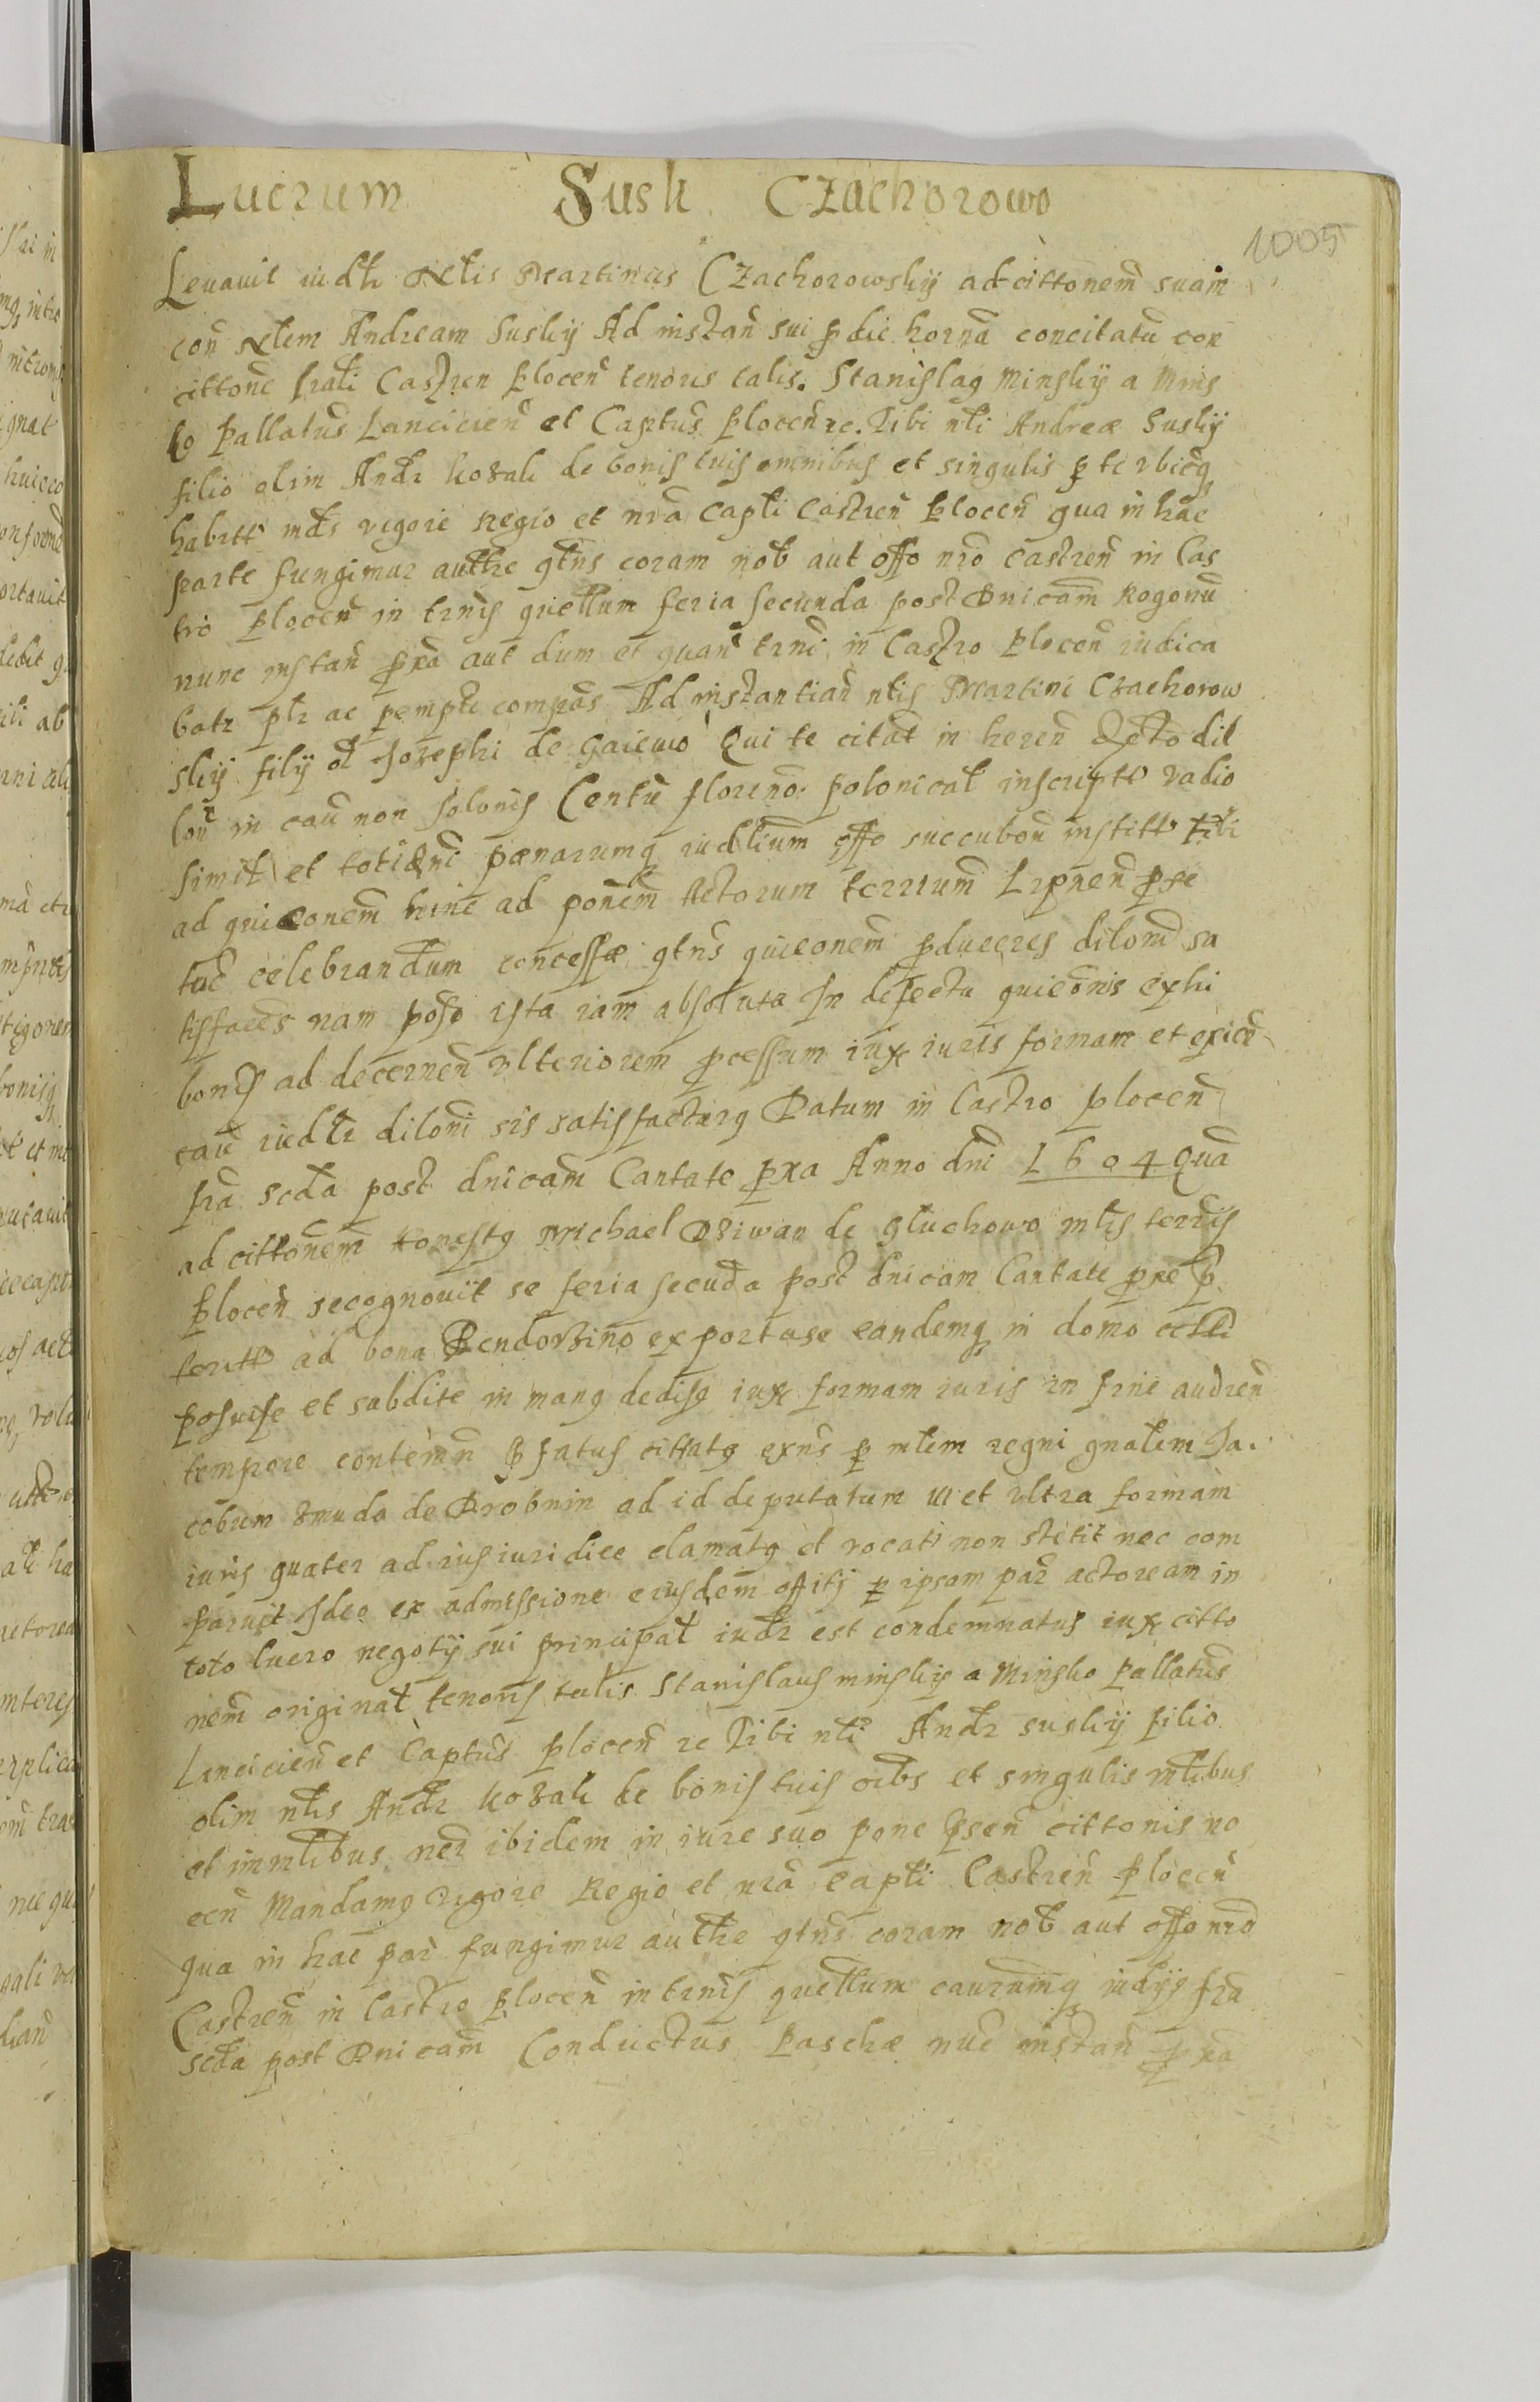 Lucrum Suski Czachorowo
1005
Leuauit iudtr Nlis Martinus Czachorowskÿ ad cittonem suam
con Nlem Andream Suskÿ Ad instan sui p die horna concitatu cor
cittone frali Castren Plocen tenoris talis. Stanislaq Minskÿ a Mins
ko Pallatus Lancicien et Captus Plocen zc. Tibi nli Andreæ Suskÿ
filio olim Andr Kozak de bonis tuis omnibus et singulis p te vbicq
habitt mds vigore Regio et nra Capli Castren Plocen qua in hac
parte fungimur authre qtns coram nob aut offo nro castren in Cas
tro Plocen in trnis quellum feria secunda post Dnicam Rogonu
nunc instan pxa aut dum et quan trni in Castro Plocen iudica
batr ptr ac pempte compas Ad instantiam nlis Martini Czachorow
skÿ filÿ ol Josephi de Gaiewo Qui te citat in heren dil
lon in cau non solonis Centu floreno polonical inscript vadio
simil et totidni pœnarumq iudlium offo succubon institt tibi
ad quiconem hinc ad ponem Actorum terrium Lipnen pfe
tuc celebrandum concessæ qtns quieonem pduceres dilom sa
tisfaces nam poso ista iam absoluta In defectu quieonis exhi
bonis ad decernen vlteriorem pcessum iux iuris formam et exien
cau iudtr diloni sis satisfacturq Datum in Castro plocen
fra scda post dnicam Cantate pxa Anno dni 1604 Qua
ad cittonem honestq Michael Dziwan de Gluchowo mlis terris
Plocen recognouit se feria secuda post dnicam Cantate pxe p
teritt ad bona Bendorzino exportase eandemq in domo
posuise et subdite in manq dedisq iux formam iuris in fine audien
tempore contemn Pfatus cittatq exns p mlem regni gnalem Ja.
cobum Zmuda de Drobnin ad id deputatum ut et vltra formam
iuris quater ad ius iuridice clamatq et vocatq non stetit nec com
paruit Ideo ex admissione eiusdem offitÿ p ipsam par actoream in
toto lucro negotÿ sui principal iudr est condemnatus iux citto
nem original tenoris talis Stanislaus minskÿ a Minsko Pallatus
Lancicien et Captus Plocen zc Tibi nli Andr suskÿ filio
olim nlis Andr Kozak de bonis tuis oibs et singulis mlibus
et immlibus ner ibidem in iure suo pone psen cittonis no
ecn Mandamq vigore Regio et nra Capli Castren Plocen
qua in hac par fungimur authre qtns coram nob aut offo nro
Castren in Castro Plocen in trnis quellum caurumq iudÿs fra
scda post Dnicam Conductus Paschæ nuc instan pxa